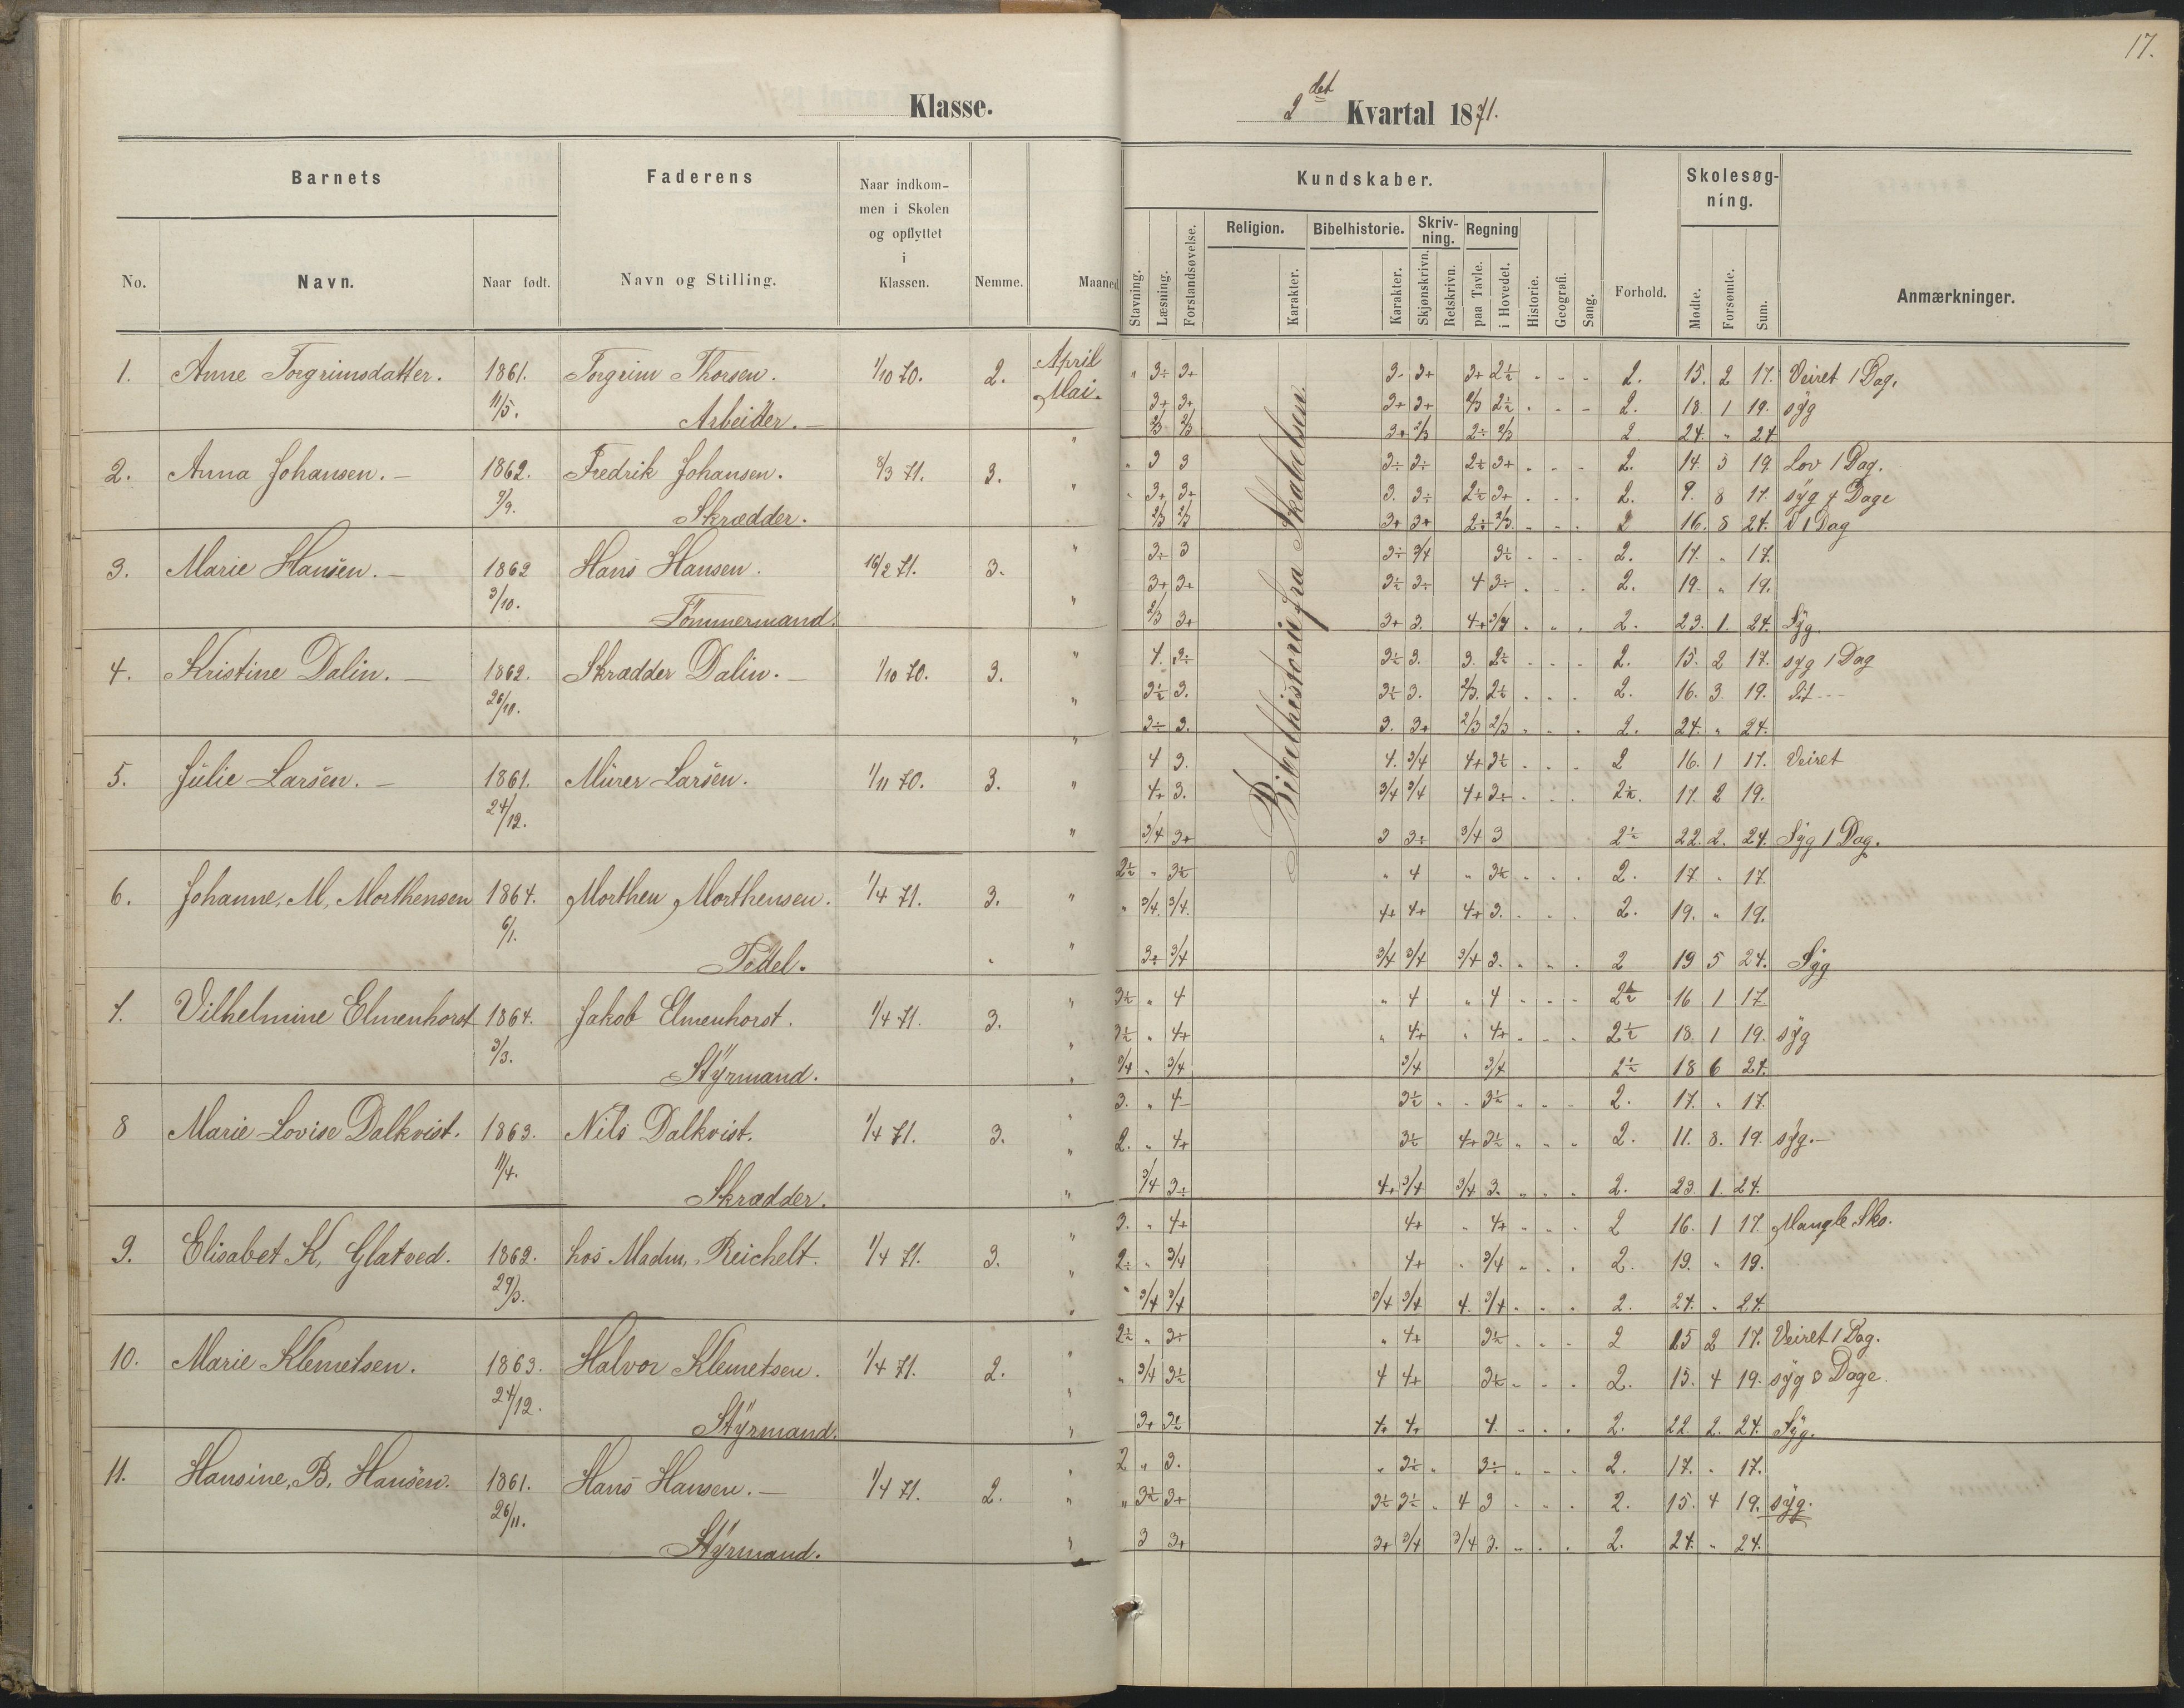 17.
Klasse.
2det Kvartal 1871.
Barnets
Faderens
Naar indkom-
men i Skolen
og opflyttet
i
Klassen.
No.
Navn.
Naar født.
Navn og Stilling.
Nemme.
Maaned
Kundskaber.
Skolesøg-
ning.
Religion.
Bibelhistorie.
Skriv-
ning.
Regning
Stavning.
Læsning.
Forstandsøvelse.
Karakter.
Karakter.
Skjønskrivn.
Retskrivn.
paa Tavle.
i Hovedet.
Historie.
Geografi.
Sang.
Forhold.
Mødte.
Forsømte.
Sum.
Anmærkninger.
Bibelhistorie fra Skabelsen.
1. Anne Torgrimsdatter. 1861. Torgrim Thorsen. 1/10 70. 2. April " 3÷ 3+ 3- 3+ 3+ 2½ - - - 2. 15. 2 17. Veiret 1 Dag.
11/5. Arbeider. Mai. 3+ 3+ 3+ 3+ 2/3 2½ 2. 18. 1 19. syg
2/3 2/3 3+ 2/3 2÷ 2/3 2 24. " 24
2. Anna Johansen. 1862. Fredrik Johansen. 8/3 71. 3. " 3 3 3÷ 3÷ 2½ 3+ 2. 14. 5 19 Lov 1 Dag.
9/9. Skrædder. " 3+ 3+ 3. 3÷ 2½ 3+ 2. 9. 8 17. syg 4 Dage
2/3 2/3 3+ 3+ 2÷ 2/3. 2 16. 8 24. 1 Dag
3. Marie Hansen. 1862 Hans Hansen. 16/2 71. 3. " 3÷ 3 3÷ 3/4 3½ 2. 17. " 17.
3/10. Tömmermand. " 3+ 3+ 3½ 3÷ 4 3÷ 2. 19. " 19.
2/3 3+ 3+ 3. 4+ 3/4 2. 23. 1. 24. Syg.
4. Kristine Dalin. 1862. Skrædder Dalin. 1/10 70. 3. " 4. 3÷ 3½ 3. 3. 2½ 2. 15. 2 17. syg 1 Dag
26/10. " 3½ 3. 3½ 3. 2/3. 2½ 2. 16. 3. 19. dit - -
" 3÷ 3. 3. 3+ 2/3 2/3 2. 24. " 24.
5. Julie Larsen. 1861. Murer Larsen. 1/11 70. 3. " 4 3. 4. 3/4 4+ 3½ 2 16. 1 17. Veiret
24/12. 4+ 3. 3/4 3/4 4+ 3÷ 2½. 17. 2 19.
" 3/4 3+ 3 3÷ 3/4 3 2½ 22. 2. 24. Syg 1 Dag.
6. Johanne, M, Morthensen 1864. Morthen Morthensen. 1/4 71. 3. " 2½ " 3½ " 4 " 3½ 2. 17. " 17.
6/1. Pedel. " 3/4. 3/4. 4+ 4+ 4+ 3. 2. 19. " 19.
" 3+ 3/4 3/4 3/4 3/4 3. 2 19 5 24. Syg
7. Vilhelmine Elmenhorst 1864. Jakob Elmenhorst. 1/4 71. 3. " 3½ " 4 " 4 " 4 2½ 16 1 17.
3/3. Styrmand. " 3½ " 4+ " 4+ " 4+ 2½ 18. 1 19. syg
3/4 " 3/4 3/4 3/4 2½ 18 6 24.
8 Marie Lovise Dalkvist. 1863. Nils Dalkvist. 1/4 71. 3. " 3. " 4- 3½ " " 3½ 2. 17. " 17.
11/4. Skrædder. " 2. " 4+ 3½ 4+ 3½ 2. 11. 8. 19. syg.
" 3/4 3÷ 4+ 3/4 3/4 3. 2. 23. 1. 24.
9. Elisabet K, Glatved. 1862. hos Madm. Reichelt. 1/4 71. 3. " 3. " 4+ 4+ " 4+ 2 16. 1 17. Mangle Sko.
29/3. " 2÷ " 3/4 4+ " 3/4 2. 19. " 19.
" 3/4 3/4 3/4 3/4 4. 3/4 2. 24. " 24.
10. Marie Klemetsen. 1863. Halvor Klemetsen. 1/4 71. 2. " 2½ " 3+ " 4+ 3½ 2 15 2 17. Veiret 1 Dag.
24/12. Styrmand. " 3/4 3½ 4 4+ 3½ 2. 15. 4 19. syg 3 Dage
" 3+ 3½ 4+ 4+ 4. 2. 22. 2. 24. Syg.
11. Hansine, B. Hansen. 1861. Hans Hansen. 1/4 71. 2. " 2 " 3. " 3½ " 3÷ 2. 17. " 17.
26/11. Styrmand. " 3½ 3+ 3½ 3½ " 4 3 2. 15. 4 19. syg.
" 3 3+ 3+ 3/4 3/4 3. 2. 24. " 24.